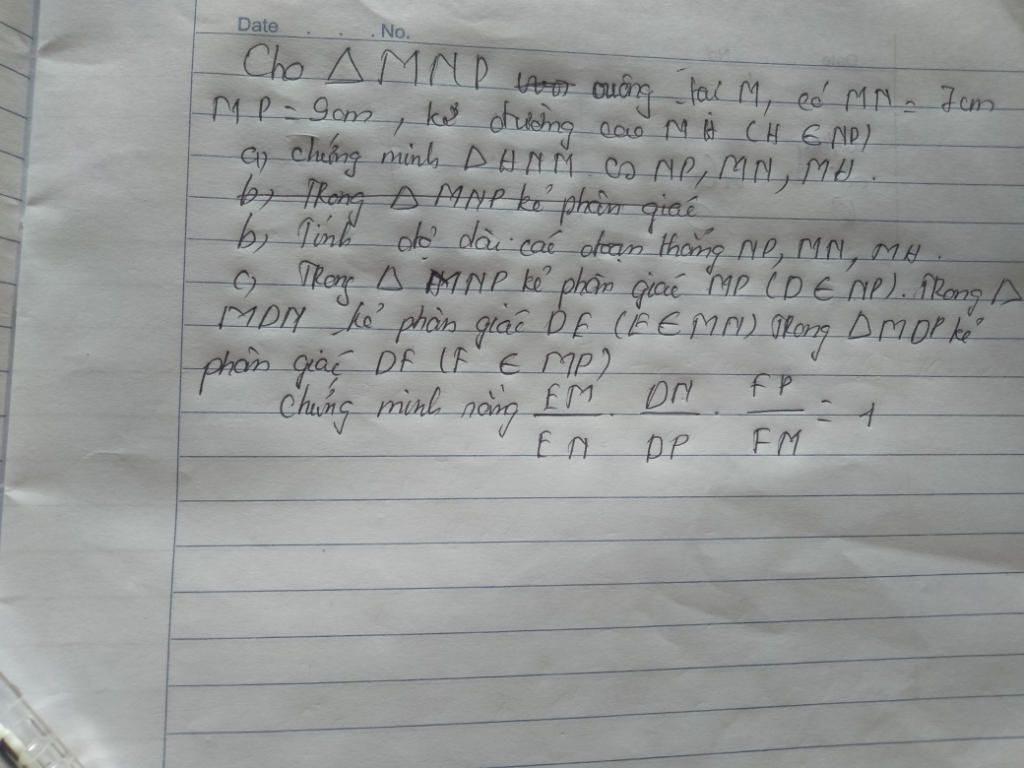 Date . . . . No.
Cho Δ MNP vuông tại M, có MN = 7cm
MP = 9cm, kẻ đường cao MH (H ∈ NP)
a, chứng minh Δ HNM ∽ NP, MN, MH.
b, Trong Δ MNP kẻ phân giác
b, Tính độ dài các đoạn thẳng NP, MN, MH.
c, Trong Δ MNP kẻ phân giác MP (D ∈ NP). Trong Δ
MDN kẻ phân giác DE (E ∈ MN) Trong Δ MDP kẻ
phân giác DF (F ∈ MP)
Chứng minh rằng EM/EN . DN/DP . FP/FM = 1